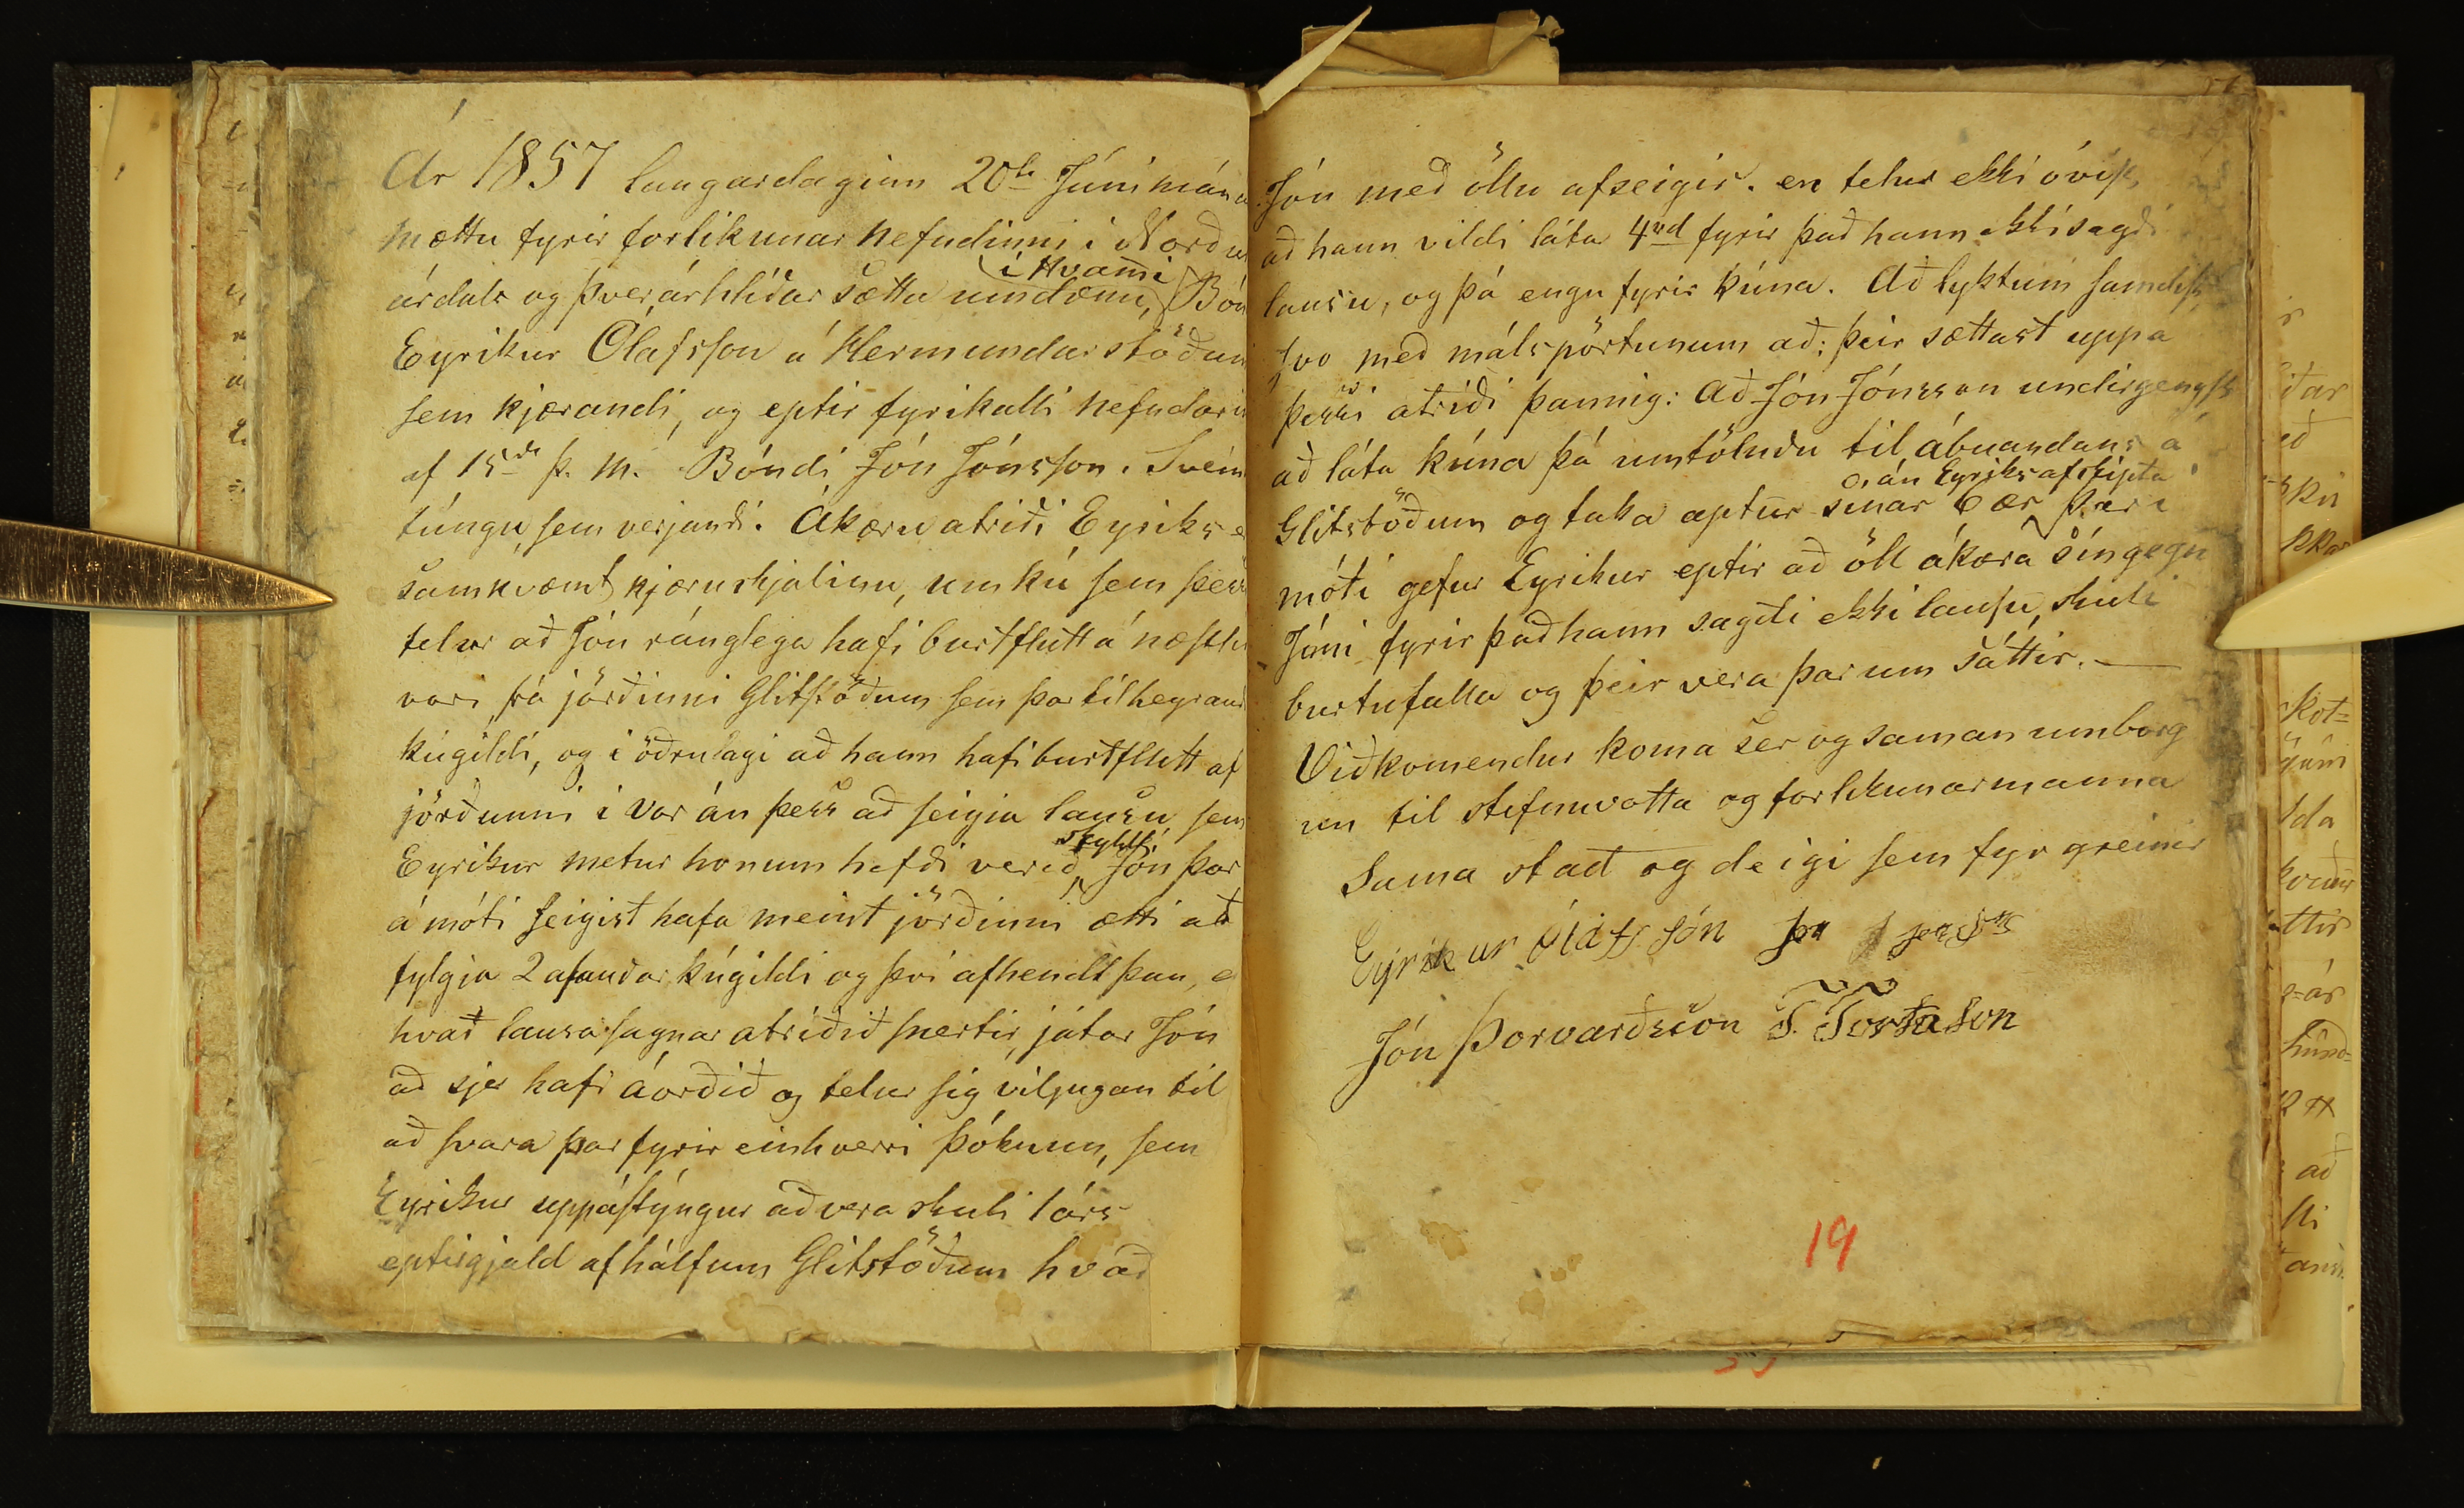 Ár 1857 laugardaginn 20ta Júnímána
mættu fyrir forlikunar nefndinni í Norður
árdals og Þverárhlíðar sætta umdæmi, í Hvammi Bón
Eyríkur Olafsson á Hermundarstöðum
sem kjærandi, og eptir fyrikalli nefndarin
af 15da þ. M. Bóndi Jón Jónsson. Svein
túngu, sem verjandi. Ákæru atriði Eyríks e
samkvæmt kjæruskjalinu, um kú sem þess
telur að Jón ránglega hafi burtflutt á næstl
vori frá jörðinni Glitstöðum sem þar tilheyrand
kúgildi, og í öðrulagi að hann hafi burtflutt af
jörðunni í vor án þess að seigia lausu sem
Eyríkur metur honum hafði verið skyldt, Jón þar
á móti seigist hafa meint jörðinni ætti að
fylgja 2 asauðar kúgildi og því afhendt þau, e
hvað lausa sagnar atriðið snertir, játar Jón
að sjer hafi áorðið og telur sig viljugan til
að svara þar fyrir einhverri þóknun, sem
Eyríkur uppástýngur að vera skuli 1 árs
eptirgjald af hálfum Glitstöðum hvað
Jón með öllu afseigir. en telur ekki óvíst,
að hann vildi láta 4rd fyrir það hann ekki sagði
lausu, og þá engu fyrir kúna. Að lyktum samdist
svo með málspörtunum að: þeir sættast uppa
þessi atriði þannig: Að Jón Jónsson undirgengst
að láta kúna þá umtöluðu til ábuandans á
Glitstöðum og taka aptur sínar 6 ær án Eyríks afskipta þar i
móti gefur Eyríkur eptir að öll ákæra sín gegn
Jóni fyrir það hann sagði ekki lausu, skuli
burtufalla og þeir vera þar um sáttir. —
Viðkomendur koma sér og saman um borg
un til stefnuvotta og forlikunarmanna
Sama stað og deigi sem fyr greinir
Eyríkur Ólafsson
Jón Þorvarðsson
19